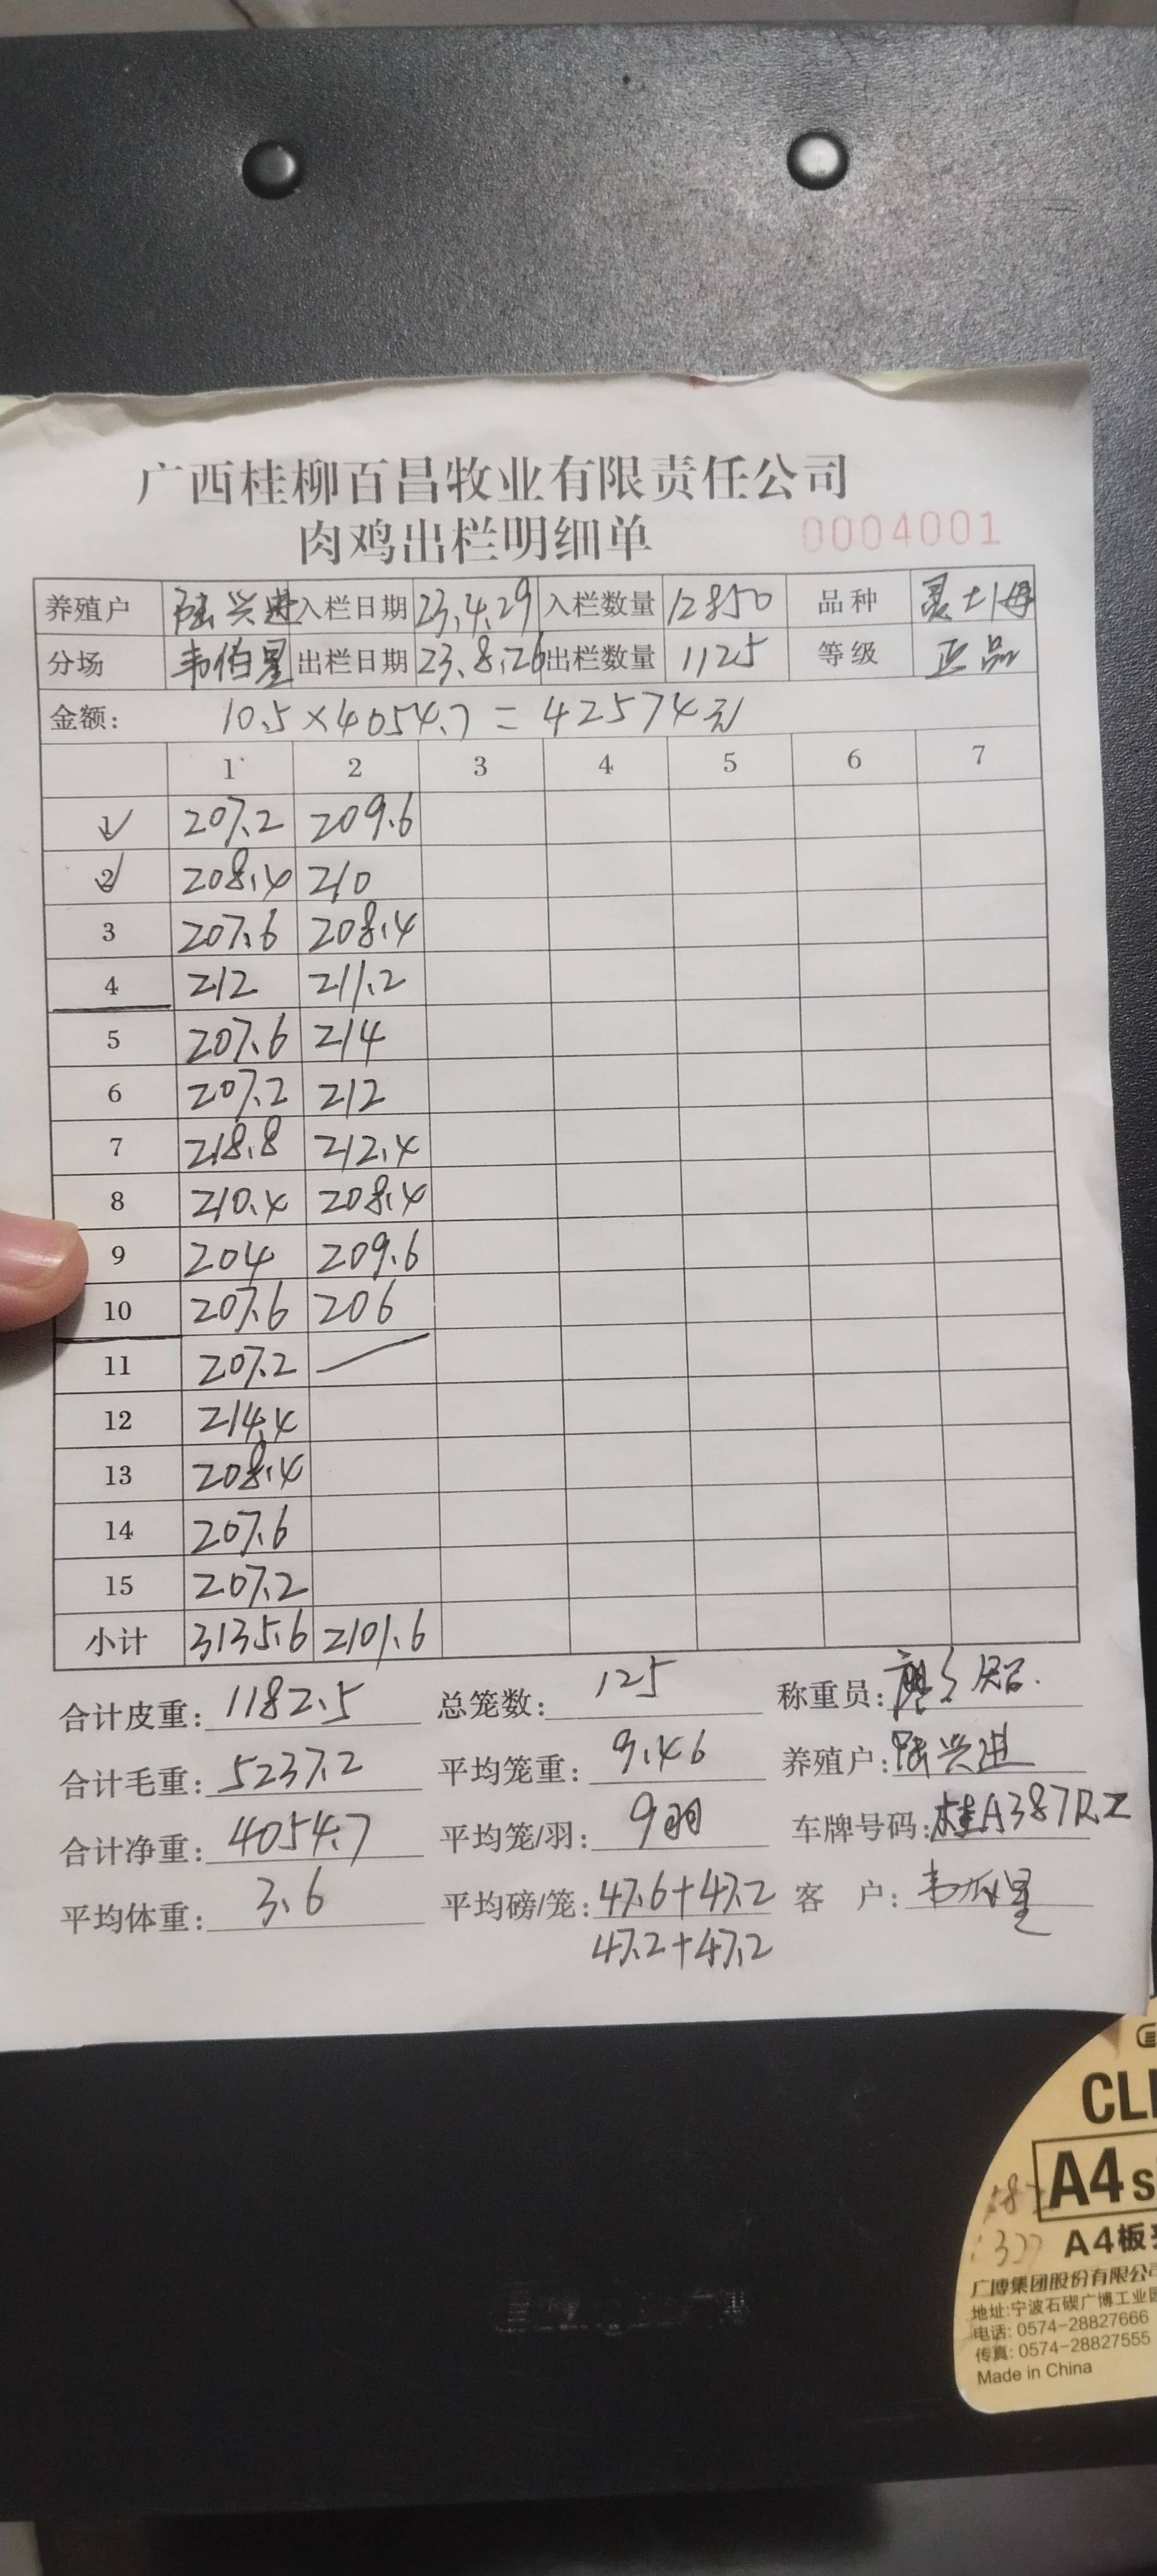 广西桂柳百昌牧业有限责任公司
肉鸡出栏明细单 0004001
养殖户 陆兴进 入栏日期 23.4.29 入栏数量 12850 品种 灵土1母
分场 韦伯星 出栏日期 23.8.26 出栏数量 1125 等级 正品
金额: 10.5×4054.7=42574元
1 2 3 4 5 6 7
1 207.2 209.6
2 208.4 210
3 207.6 208.4
4 212 211.2
5 207.6 214
6 207.2 212
7 218.8 212.4
8 210.4 208.4
9 204 209.6
10 207.6 206
11 207.2
12 214.4
13 208.4
14 207.6
15 207.2
小计 3135.6 2101.6
合计皮重: 1182.5 总笼数: 125 称重员:
合计毛重: 5237.2 平均笼重: 9.46 养殖户: 陆兴进
合计净重: 4054.7 平均笼/羽: 9羽 车牌号码: 桂A387RZ
平均体重: 3.6 平均磅/笼: 47.6+47.2 客 户: 韦伯星
47.2+47.2
CL
A4 S
A4板
广博集团股份有限公司
地址:宁波石碶广博工业
电话: 0574-28827666
传真: 0574-28827555
Made in China